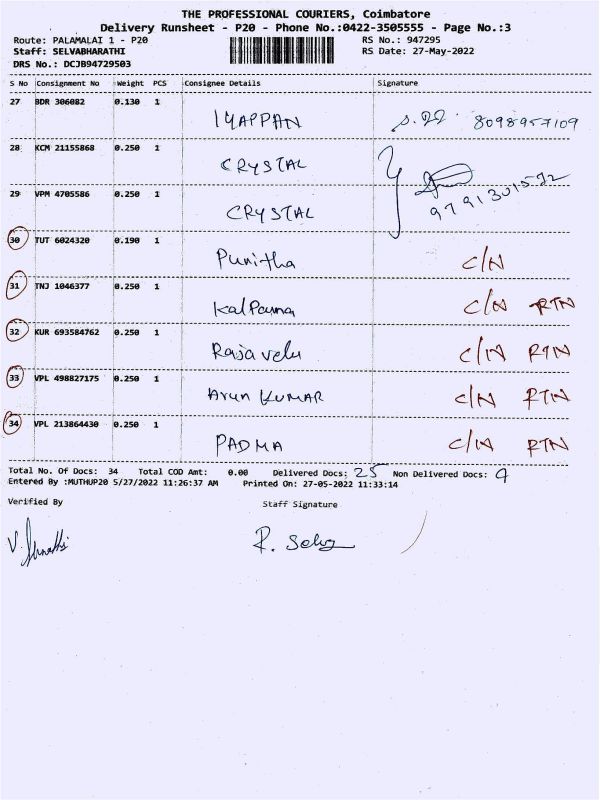 THE PROFESSIONAL COURIERS, Coimbatore
Delivery Runsheet - P20 - Phone No.:0422-3505555 - Page No.:3
Route: PALAMALAI 1 - P20 RS No.: 947295
Staff: SELVABHARATHI RS Date: 27-May-2022
DRS No.: DCJB94729503
S No Consignment No Weight PCS Consignee Details Signature
27 BDR 306082 0.130 1
IYAPPAN 8098957109
28 KCM 21155868 0.250 1
CRYSTAL
29 VPM 4705586 0.250 1 9791301572
CRYSTAL
30 TUT 6024320 0.190 1
Punitha C/N
31 TNJ 1046377 0.250 1
Kalpana C/N RTN
32 KUR 693584762 0.250 1
Rajavelu C/N RTN
33 VPL 498827175 0.250 1
Arun KUMAR C/N RTN
34 VPL 213864430 0.250 1
PADMA C/N RTN
Total No. Of Docs: 34 Total COD Amt: 0.00 Delivered Docs: 25 Non Delivered Docs: 9
Entered By :MUTHUP20 5/27/2022 11:26:37 AM Printed On: 27-05-2022 11:33:14
Verified By Staff Signature